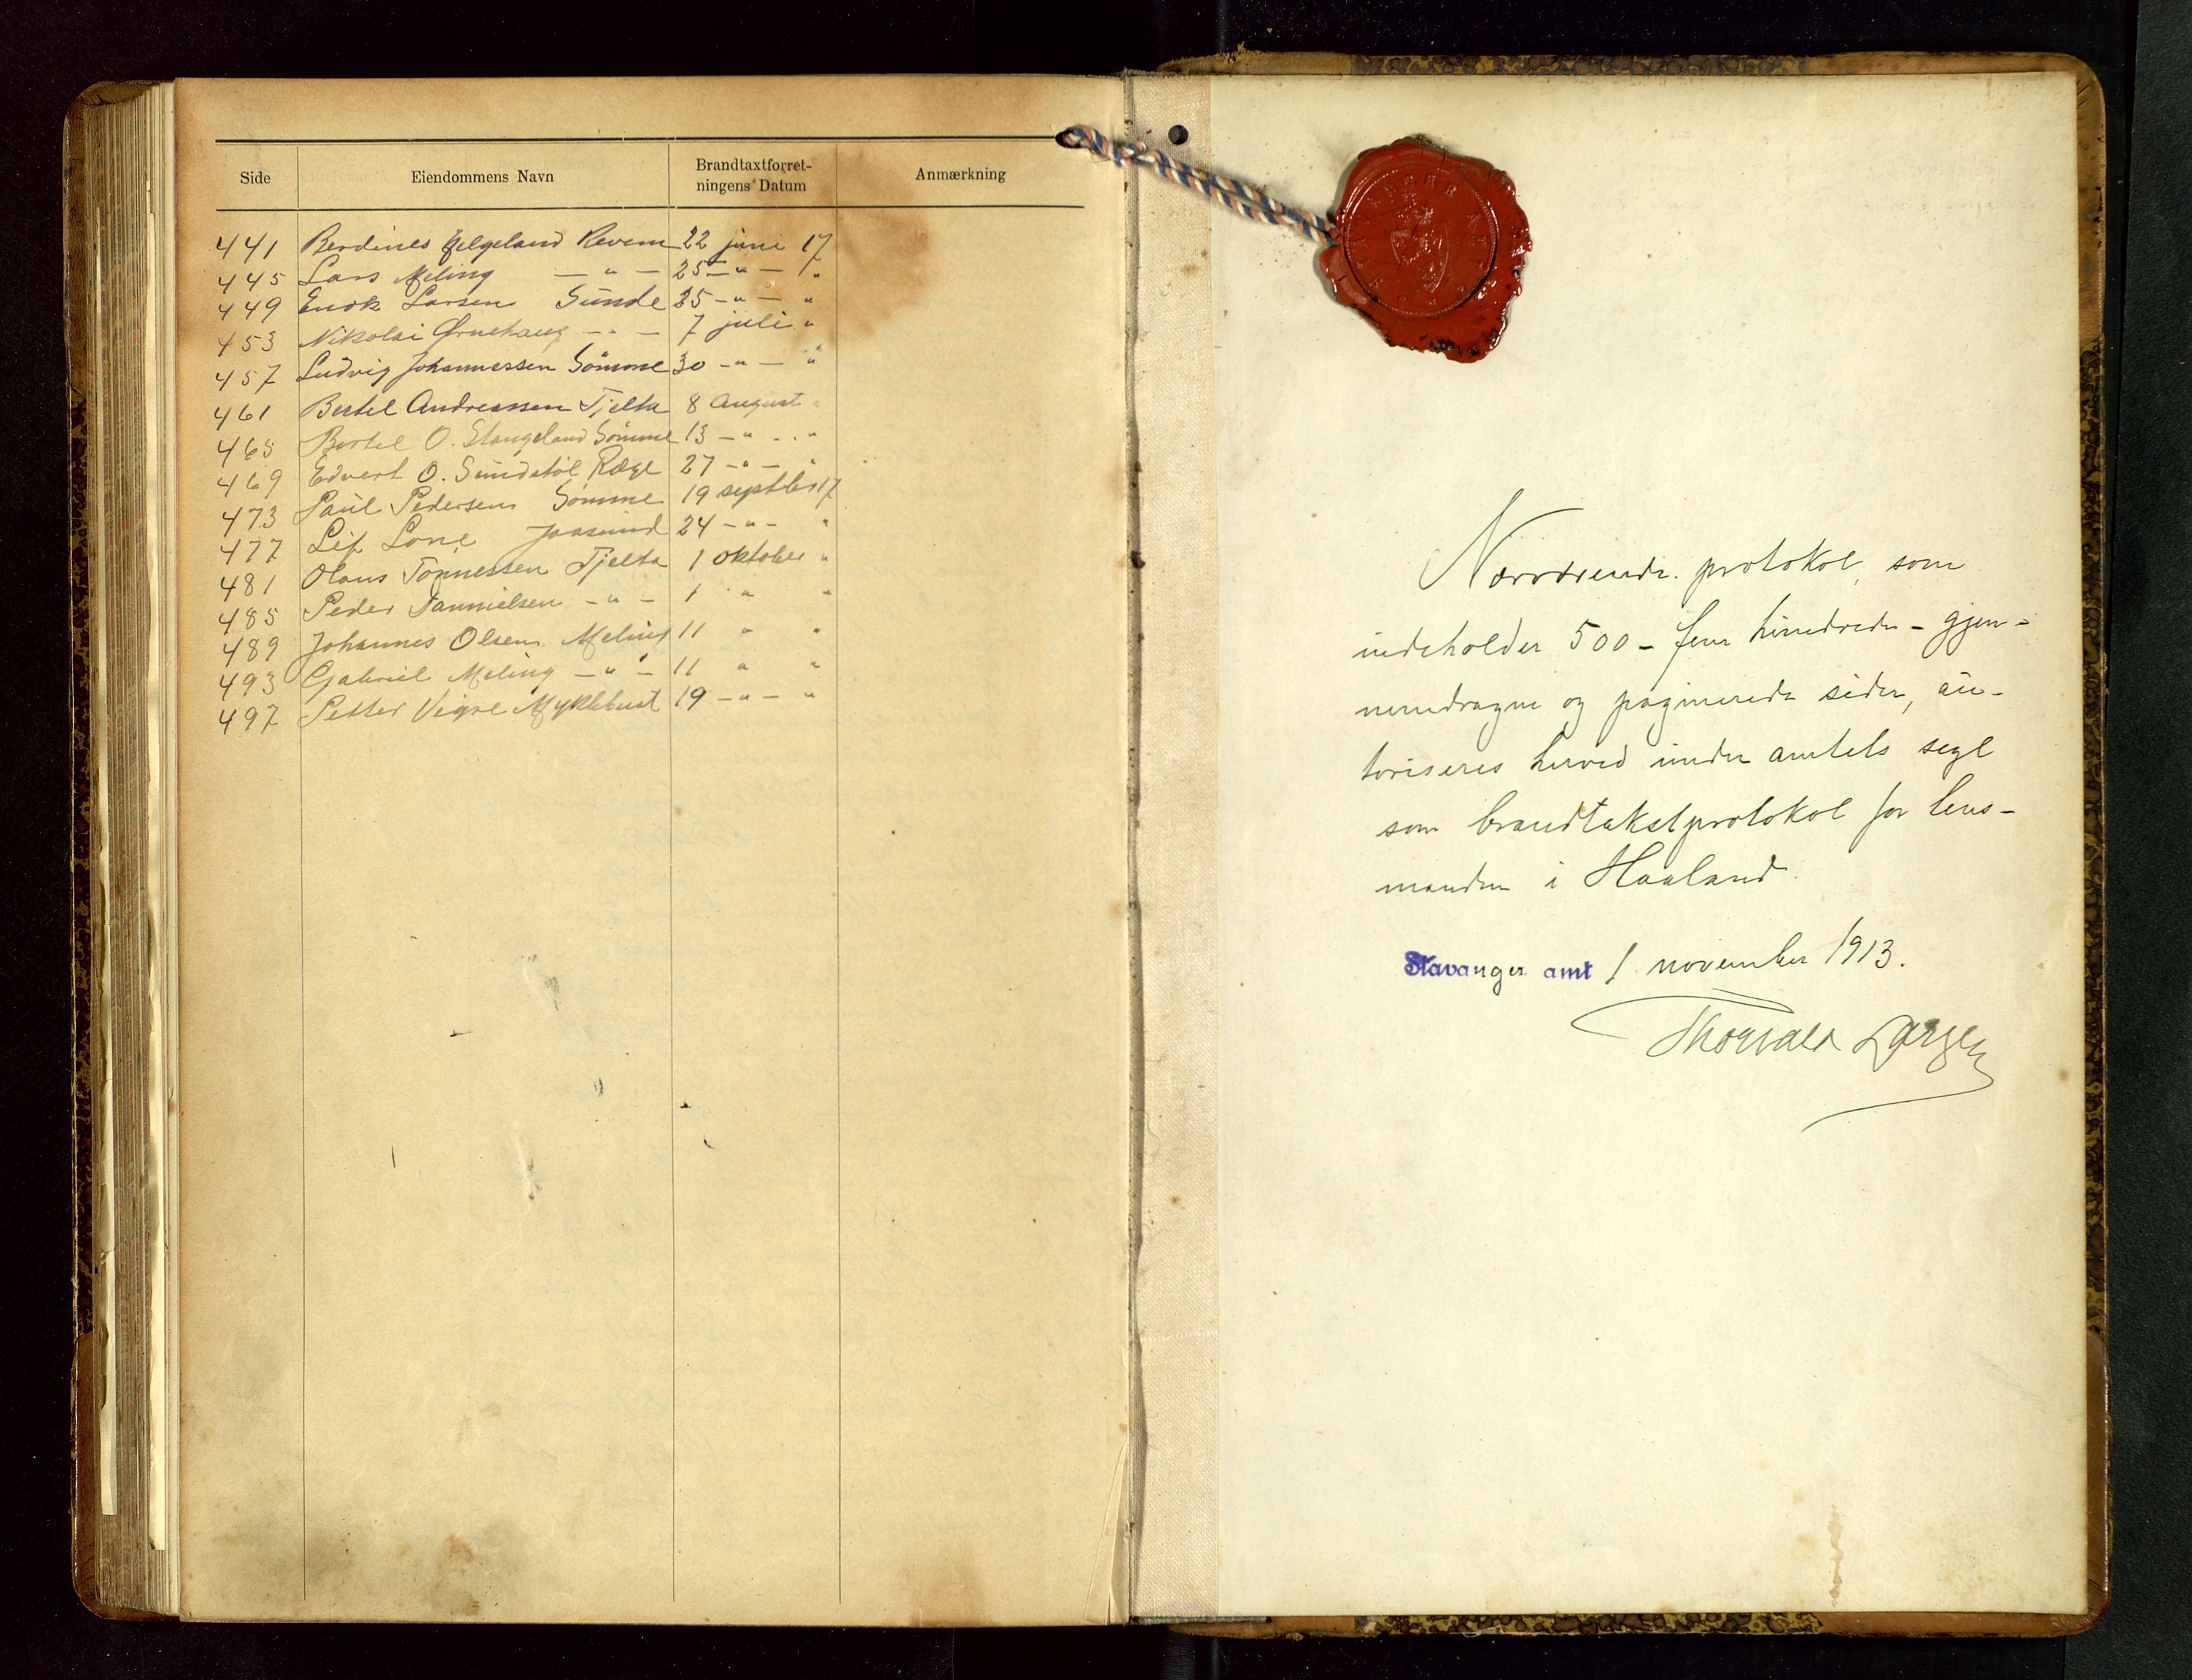 Side Eiendommens Navn Brandtaxtforret-
ningens Datum Anmærkning
441 Berdines Helgeland Revem 22 juni 17
445 Lars Meling — " — 25 — " — "
449 Enok Larsen Sunde 25 — " — "
453 Nikolai Ørnehaug — " — 7 juli "
457 Ludvig Johannessen Sömme 30 — " — "
461 Bertel Andreassen Tjelta 8 August "
465 Bertel O. Stangeland Sömme 13 — " — "
469 Edvert O. Sundstöl Ræge 27 — " — "
473 Paul Pedersen Sömme 19 septbr 17
477 Leif Lone Joasund 24 — " — "
481 Olaus Tönnessen Tjelta 1 Oktober "
485 Peder Tannielsen — " — 1 " "
489 Johannes Olsen Meling 11 " "
493 Gabriel Meling — " — 11 " "
497 Petter Vigre Myklebust 19 — " — "
Nærværende protokol, som
indeholder 500 – fem hundrede – gjen-
nemdragne og paginerede sider, au-
toriseres herved under amtets segl
som brandtakstprotokol for lens-
manden i Haaland.
Stavanger amt 1 november 1913.
Thorvald Larsen